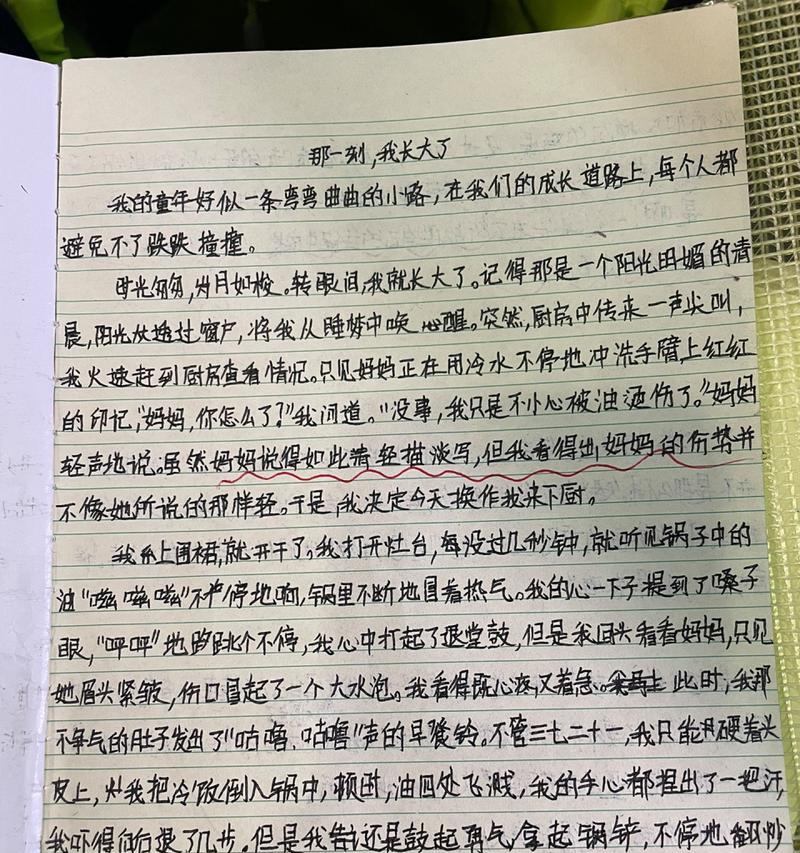 那一刻,我长大了
我的童年好似一条弯弯曲曲的小路,在我们的成长道路上,每个人都
避免不了跌跌撞撞。
时光匆匆,岁月如梭。转眼间,我就长大了。记得那是一个阳光明媚的清
晨,阳光透过窗户,将我从睡梦中唤醒。突然,厨房中传来一声尖叫,
我火速赶到厨房查看情况。只见妈妈正在用冷水不停地冲洗手臂上红红
的印记,“妈妈,你怎么了?”我问道。“没事,我只是不小心被油洒伤了。”妈妈
轻声地说。虽然妈妈说得如此清轻描淡写,但我看得出妈妈的伤势并
不像她所说的那样轻。于是,我决定今天换作我来下厨。
我系上围裙,就开干了。我打开灶台,每没过几秒钟,就听见锅子中的
油“嗞嗞嗞”不停地响,锅里不断地冒着热气。我的心一下子提到了嗓子
眼,“呯呯”地跳个不停,我心中打起了退堂鼓,但是我回头看看妈妈,只见
她眉头紧皱,伤口冒起了一个大水泡。我看得既心疼,又着急。此时,我那
不争气的肚子发出了“咕噜、咕噜”声的早餐铃。不管三七二十一,我只能硬着头
皮上,我把冷饭倒入锅中,顿时,油四处飞溅,我的手心都捏出了一把汗,
我吓得向后退了几步。但是我还是鼓起勇气,拿起锅铲,不停地翻炒